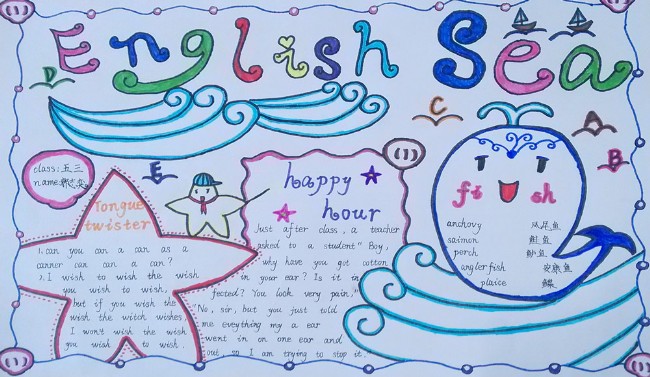 English Sea
D
C
A
B
E
class: 五三
name:
Tongue
twister
1. can you can a can as a
cannor can can a can?
2. I wish to wish the wish
you wish to wish,
but if you wish the
wish the witch wishes,
I won't wish the wish
you wish to wish.
happy
hour
Just after class, a teacher
asked to a student" Boy,
why have you got cotton
in your ear? Is it in
fected? You look very pain,"
"No, sir, but you just told
me eveything my a ear
went in on one ear and
out so I am trying to stop it.
fi sh
anchovy 鱼
saimon 鲑鱼
perch 鲈鱼
angler fish 安康鱼
plaice 鲽